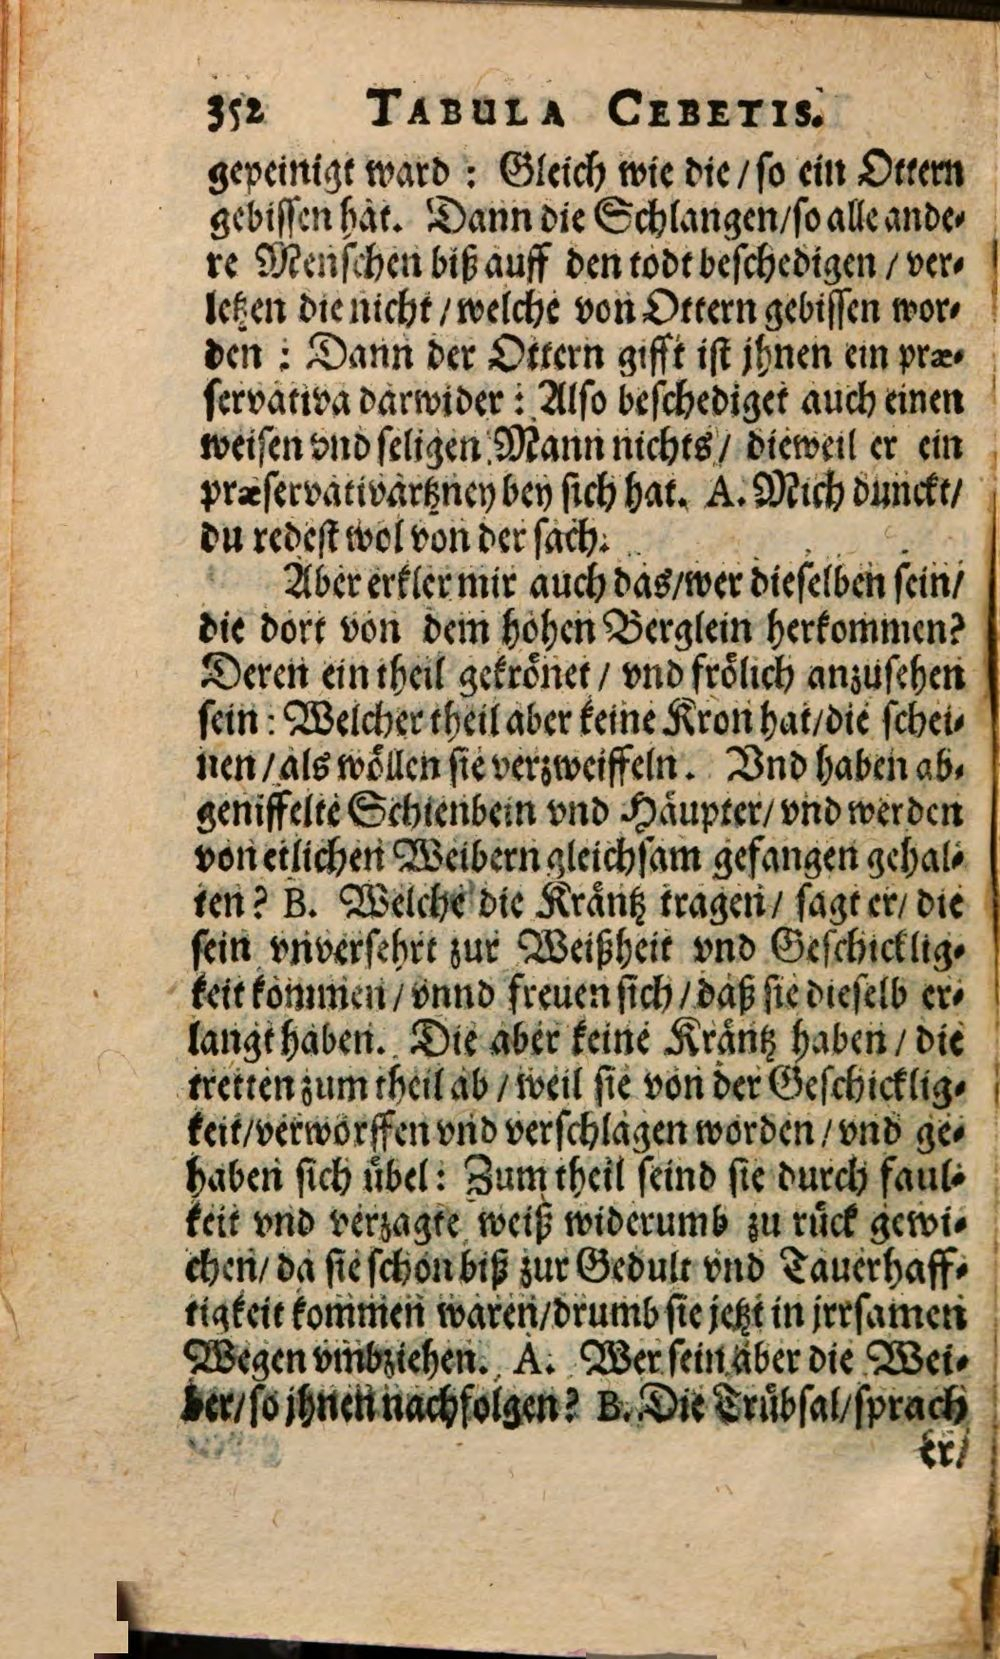 352 TABULA CEBETIS.
gepeinigt ward : Gleich wie die / so ein Ottern
gebissen hat. Dann die Schlangen / so alle ande-
re Menschen biß auff den todt beschedigen / ver-
letzen die nicht / welche von Ottern gebissen wor-
den : Dann der Ottern gifft ist jhnen ein præ-
servativa darwider : Also beschediget auch einen
weisen vnd seligen Mann nichts / dieweil er ein
præservativartzney bey sich hat. A. Mich dunckt /
du redest wol von der sach.
Aber erkler mir auch das / wer dieselben sein /
die dort von dem hohen Berglein herkommen?
Deren ein theil gekrönet / vnd frölich anzusehen
sein : Welcher theil aber keine Kron hat / die schei-
nen / als wöllen sie verzweiffeln. Vnd haben ab-
geniffelte Schienbein vnd Häupter / vnd werden
von etlichen Weibern gleichsam gefangen gehal-
ten? B. Welche die Kräntz tragen / sagt er / die
sein vnversehrt zur Weißheit vnd Geschicklig-
keit kommen / vnnd freuen sich / daß sie dieselb er-
langt haben. Die aber keine Kräntz haben / die
tretten zum theil ab / weil sie von der Geschicklig-
keit / verworffen vnd verschlagen worden / vnd ge-
haben sich übel : Zum theil seind sie durch faul-
keit vnd verzagte weiß widerumb zu rück gewi-
chen / da sie schon biß zur Gedult vnd Tauerhaff-
tigkeit kommen waren / drumb sie jetzt in jrrsamen
Wegen vmbziehen. A. Wer sein aber die Wei-
ber / so jhnen nachfolgen? B. Die Trübsal / sprach
er /